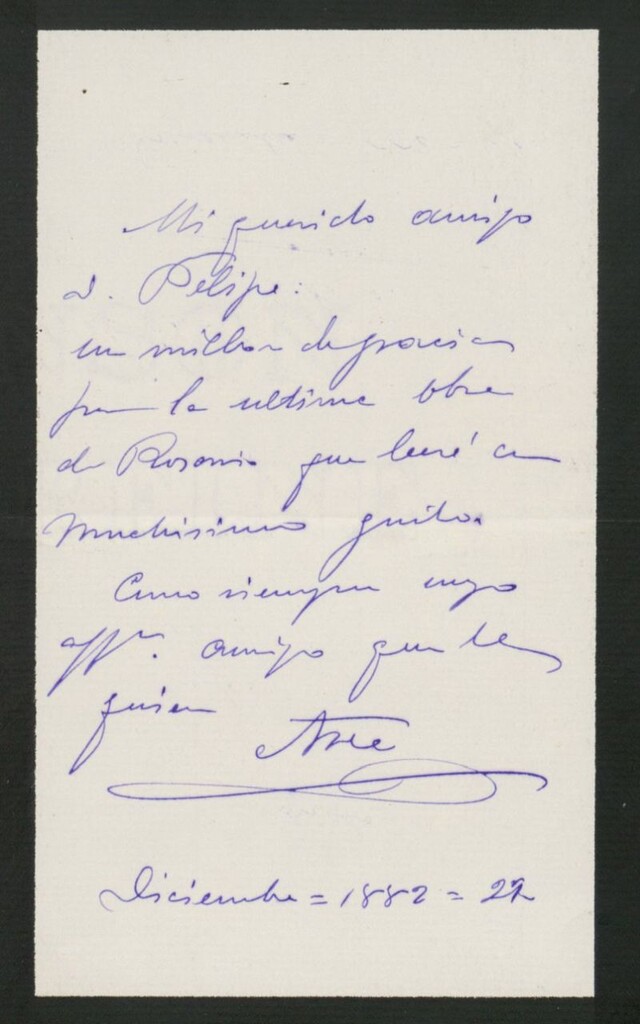 Mi querido amigo
D. Felipe:
un millon de gracias
por la ultima obra
de Rosario que leeré con
muchisimo gusto.
Como siempre suyo
affmo. amigo que le
quiere
Arce
Diciembre = 1882 = 22